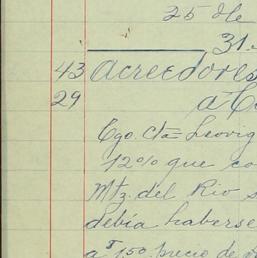 25 de
31.
43 Acreedores
29 a C
Ego. Cta= Leovig
12% que co
Mtz. del Rio s
debía haberse
a $1.50 precio de